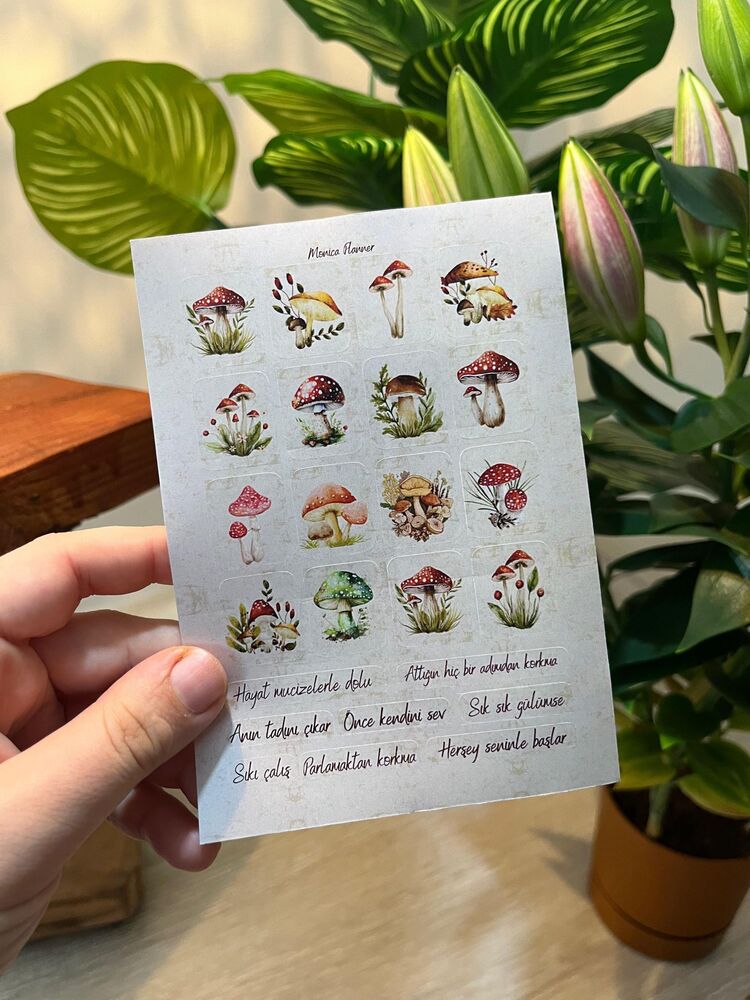 Monica Planner
Hayat mucizelerle dolu Attığın hiç bir adımdan korkma
Anın tadını çıkar Önce kendini sev Sık sık gülümse
Sıkı çalış Parlamaktan korkma Herşey seninle başlar